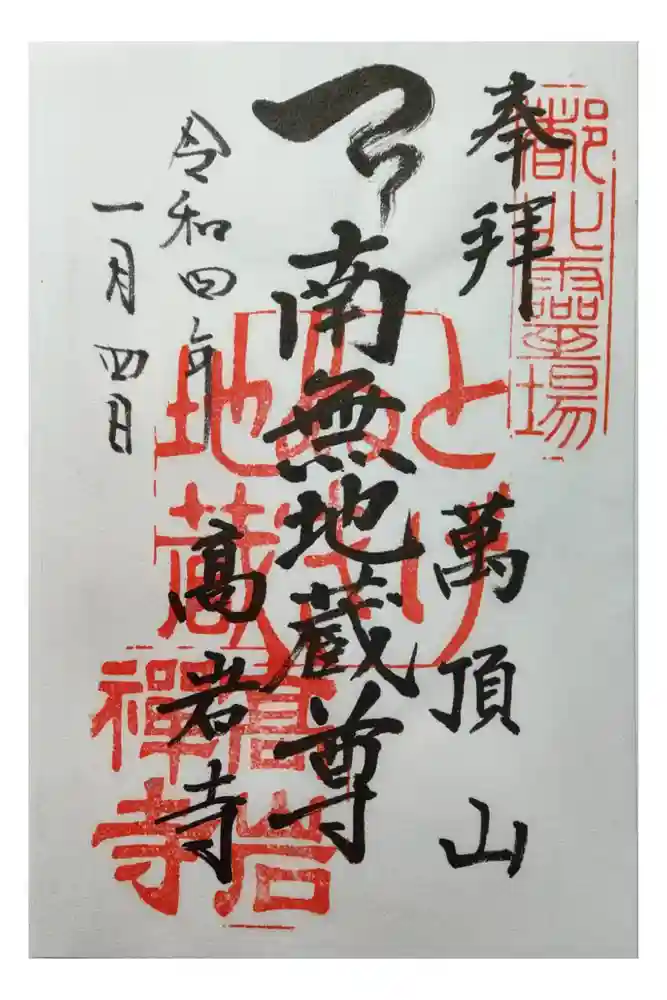 奉拝
都北霊場
萬頂山
南無地蔵尊
とげぬき
地蔵
高岩寺
高岩
禅寺
令和四年
一月四日